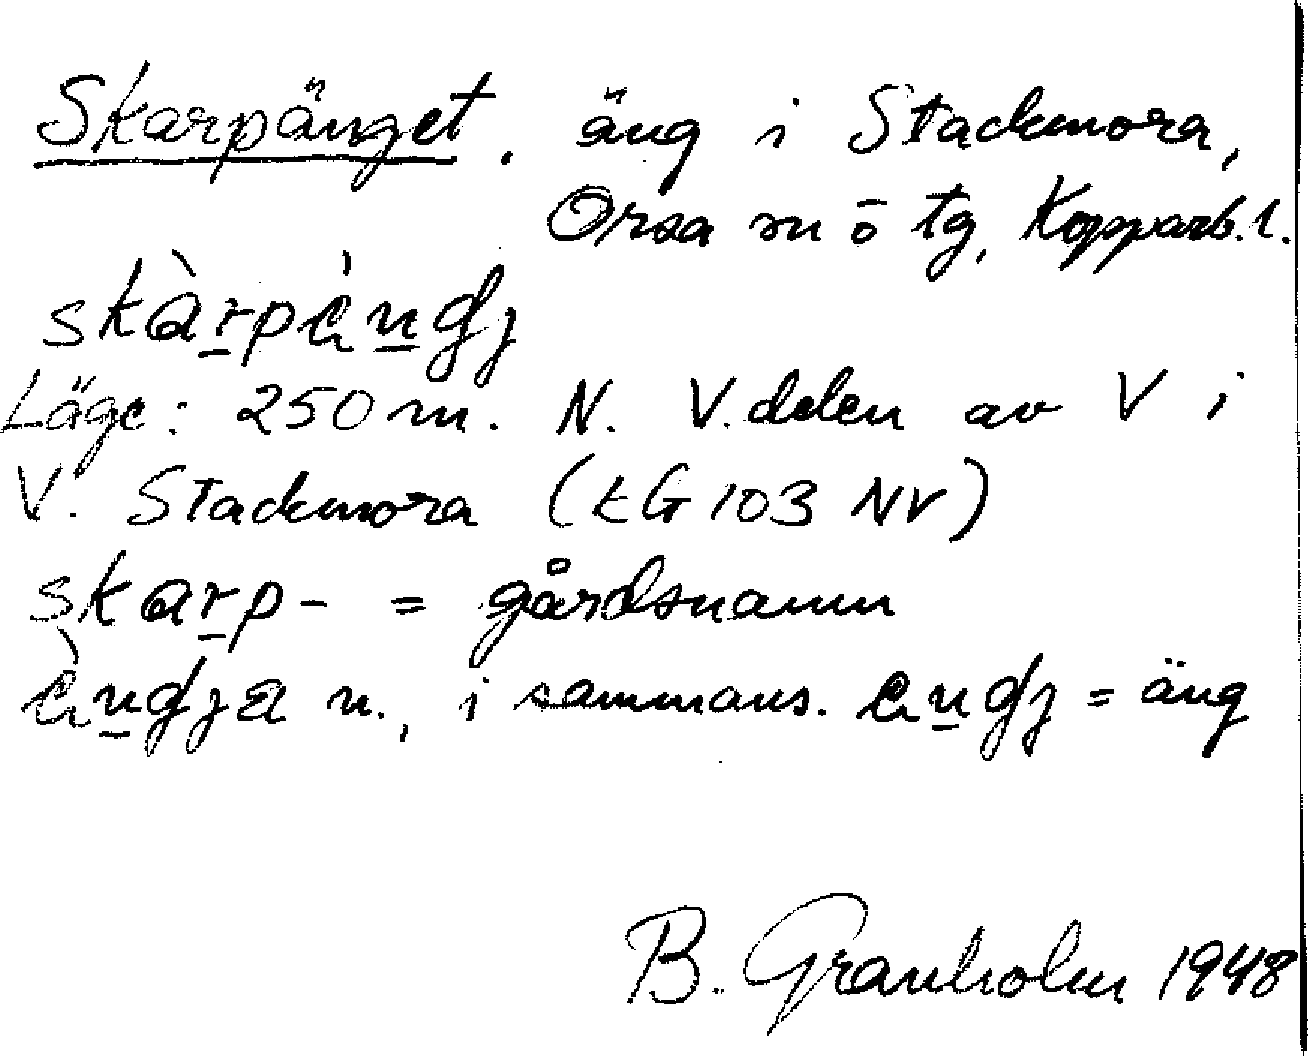 Skarpänget. äng i Stackmora,
Orsa sn ö tg, Kopparb. l.
skàr̲pὲn̲dj
Läge: 250 m. N. V. delen av V i
V. Stackmora (tG 103 NV)
skar̲p- = gårdsnamn
ὲn̲dja n., i sammans. ɛn̲dj = äng
B. Granholm 1948